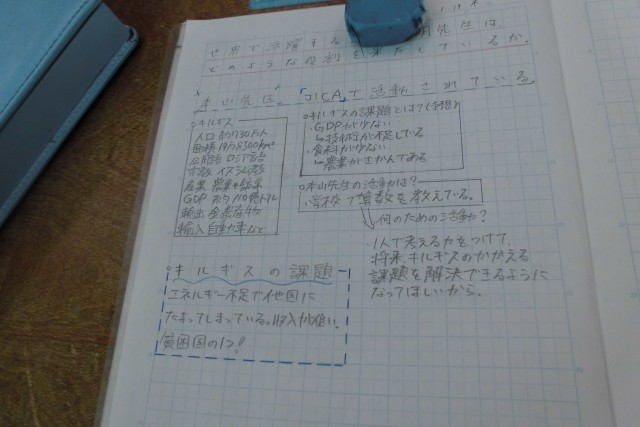 世界で活躍する
どのような役割を果たしているか。
本山先生 「JICA」で活動されている。
○キルギス
人口 約730万人
面積 19万8500km²
公用語 ロシア語
宗教 イスラム教
産業 農業
GDP 約110億ドル
輸出 金
輸入 自動車など
○キルギスの課題とは?(予想)
・GDPが少ない
↳技術が不足している
・食料が少ない
↳農業がさかんである
○本山先生の活動は?
学校で算数を教えている。
何のための活動?
・1人で考える力をつけて、
将来キルギスのかかえる
課題を解決できるように
なってほしいから。
○キルギスの課題
エネルギー不足で他国に
たよってしまっている。収入が低い。
貧困国の1つ!